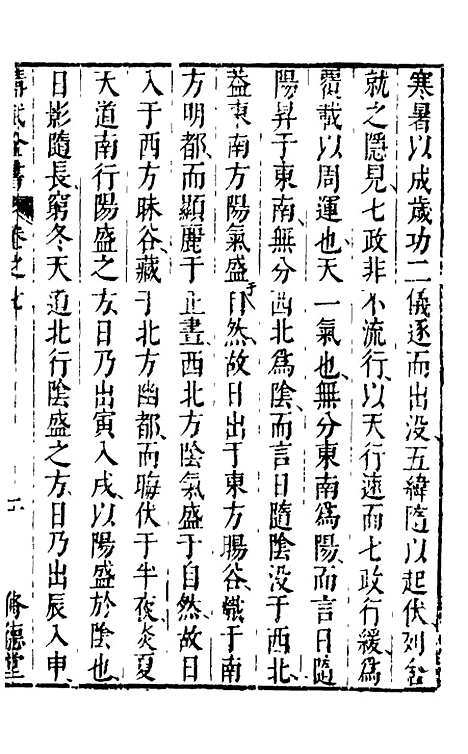 寒暑以成歲功二儀逐而出没五緯隨以起伏列宿
就之隱見七政非不流行以天行速而七政行緩為
覆載以周運也天一氣也無分東南為陽而言日隨
陽昇于東南無分西北為陰而言日隨陰没于西北
蓋東南方陽氣盛于自然故日出于東方暘谷熾于南
方明都而顯麗于正晝西北方陰氣盛于自然故日
入于西方昧谷藏于北方幽都而晦伏于半夜炎夏
天道南行陽盛之方日乃出寅入戌以陽盛於陰也
日影隨長窮冬天道北行陰盛之方日乃出辰入申
講武全書 卷之七
脩德堂